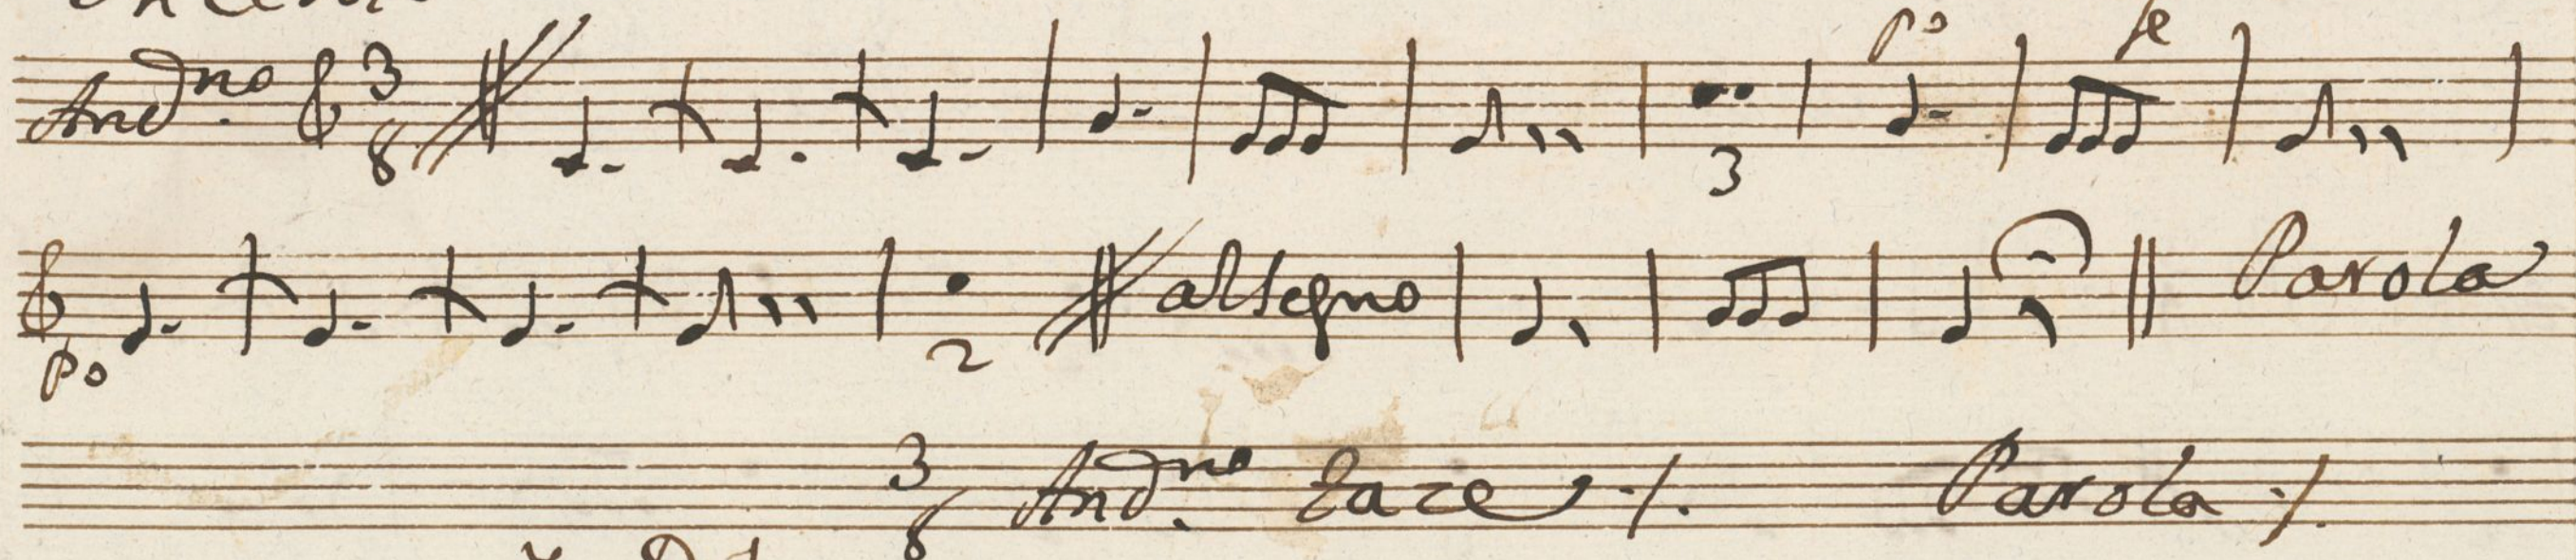 po fe
And.no 3 8
3
Po 2 al segno Parola
3 8 And.no Tace Parola